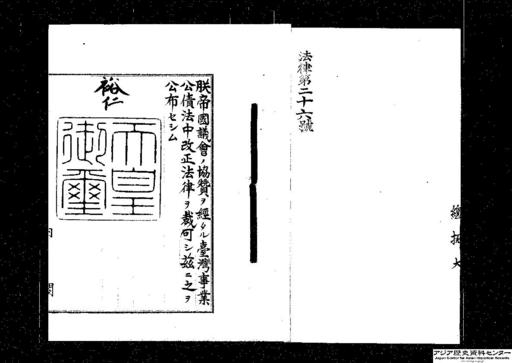 法律第二十六號
朕帝國議會ノ協贊ヲ經タル臺灣事業
公債法中改正法律ヲ裁可シ茲ニ之ヲ
公布セシム
裕仁
天皇
御璽
内閣
アジア歴史資料センター
Japan Center for Asian Historical Records